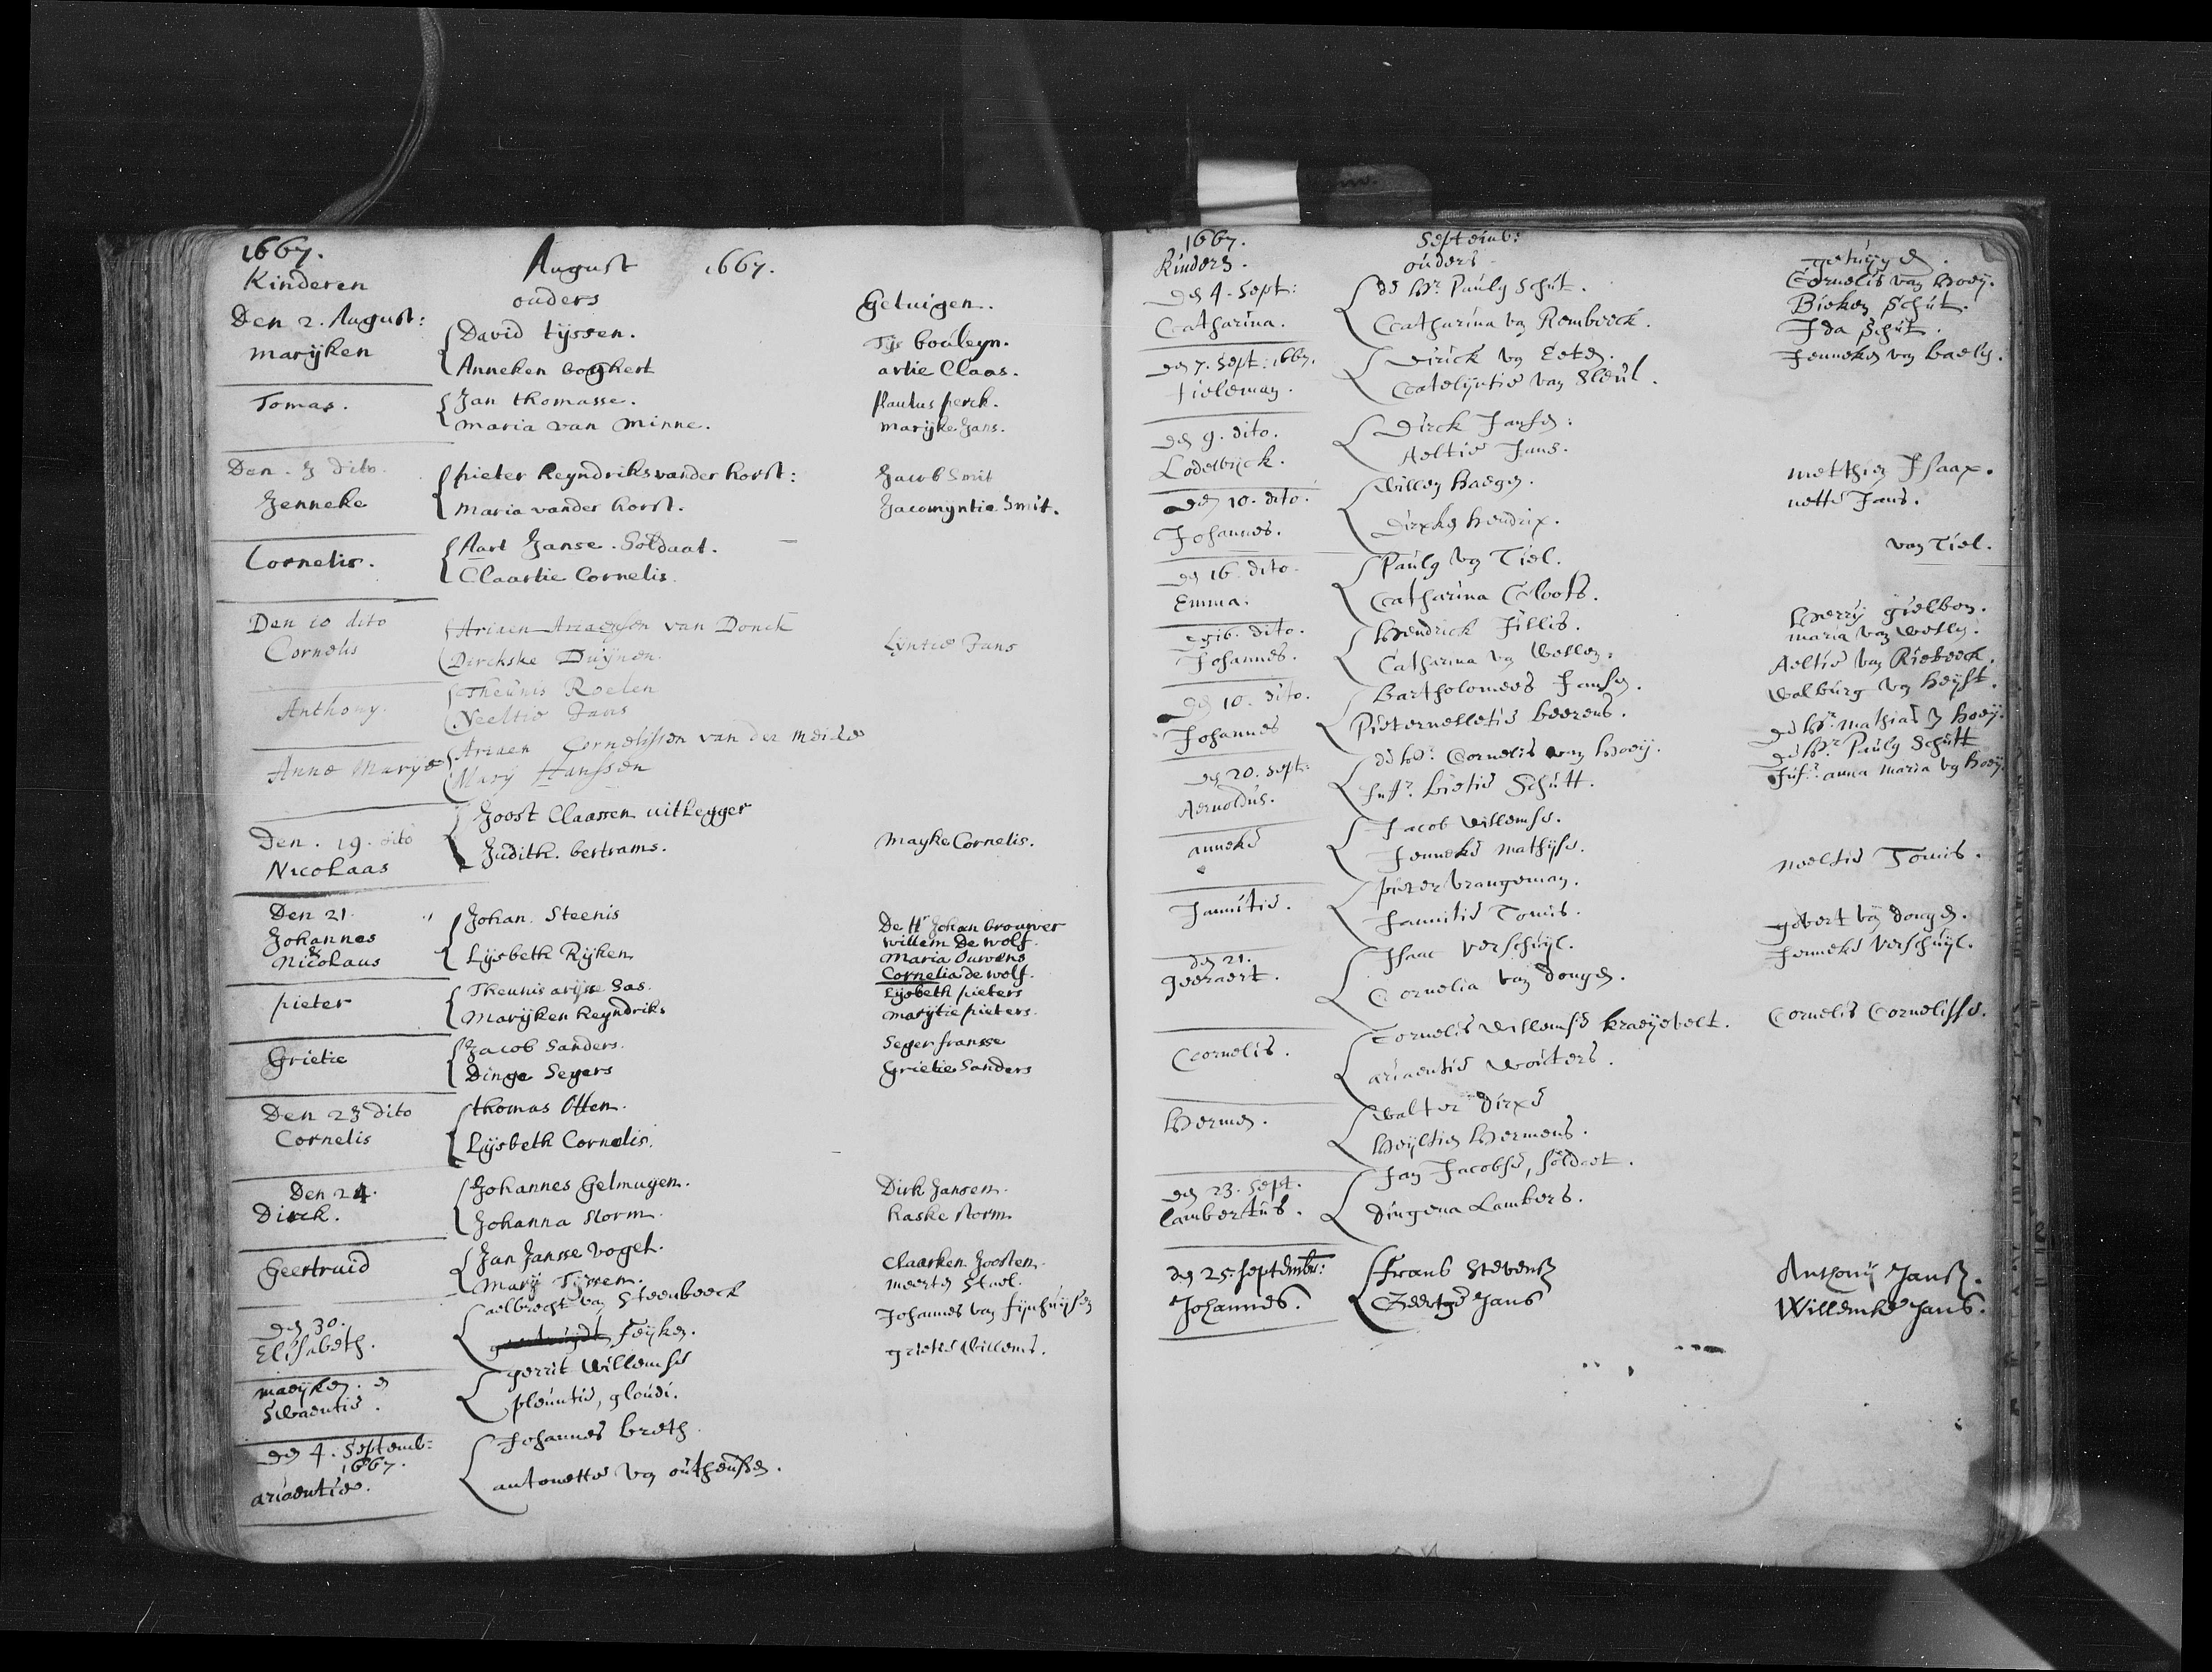 1667.
August 1667.
Kinderen
ouders
Getuigen.
Den 2. August:
marijken
David tijssen.
Anneken boghert
Tijs bouleyn.
artie Claas.
Tomas.
Jan thomasse.
maria van Minne.
paulus perck.
marijke Jans.
Den. 3 dito.
Jenneke
pieter heyndriks vander horst:
Maria vander horst.
Jacob Smit
Jacomyntie Smit.
Cornelis.
Aart Janse. Soldaat.
Claartie Cornelis.
Den 10 dito
Cornelis
Ariaen Ariaensen van Donck
Dirckske Duijnen.
Lyntie Jans
Anthony.
Theunis Roelen
Neeltie Jans
Anne Marije
Ariaen Cornelissen van der Meide
Marij Hanssen
Den. 19. dito
Nicolaas
Joost Claassen uitlegger
Judith. bertrams.
mayke Cornelis.
Den 21.
Johannes
&
Nicolaus
Johan. Steenis
Lijsbeth Rijken
De Hr Johan brouwer
willem De wolf.
Maria Ouwens
Cornelia de wolf.
pieter
Theunis arijsse Sas.
Marijken heyndriks
Lijsbeth pieters
marijtie pieters.
Grietie
Jacob Sanders.
Dinge Segers
Seger fransse
Grietie Sanders
Den 23 dito
Cornelis
thomas Otten.
Lijsbeth Cornelis.
Den 24.
Dirck.
Johannes Gelmugen.
Johanna Storm.
Dirk Jansen.
haske Storm.
Geertruid
Jan Jansse vogel.
Marij Tijssen.
Claarken Joosten.
meerte Stoel.
den 30.
Elisabeth.
aelbrecht van Steenbeeck
geertruijdt feijken.
Johannes van fijnhuijsen
grietie Willems.
maeijken. en
Swaentie.
gerrit Willemse
pleuntie, gloudi.
den 4. Septemb:
1667.
ariaentie.
Johannes breth
antonette van outheusden.
1667.
Septemb:
Kinders.
ouders
getuijgen.
den 4. Sept:
Catharina.
de Hr. Paulus Schut.
Catharina van Rembeeck.
Cornelis van hoeij.
Bieken Schut.
Ida Schut.
Jenneken van baelen.
den 7. Sept: 1667.
tieleman.
Dirick van Eeten.
Catelijntie van Sleul.
den 9. dito.
Lodewijck.
Dirck Jansen:
Aeltie Jans.
den 10. dito.
Johannes.
Willem haegen.
Dirxken hendrix.
metthien Isaax.
nette Jans.
den 16. dito.
Emma.
Paulus van Tiel.
Catharina Cloots.
van Tiel.
den 16. dito.
Johannes.
Hendrick Jillis.
Catharina van Wellen.
Herrij gielbon.
maria van Wellen.
den 10. dito.
Johannes
Bartholomeus Jansen.
Pieternelletie beerens.
Aeltie van Riebeeck.
walburg van heijst.
den 20. Sept:
Aernoldus.
de Hr. Cornelis van Hoeij.
Jufr. bietie Schutt.
de Hr. Mathias v hoeij.
de Hr. Paulus Schutt
Jufr. anna maria van hoeij.
anneke
Jacob Willemse.
Jenneke Mathijse.
Jannitie.
pieter brangeman.
Jannitie Tonis.
neeltie Tonis.
den 21.
geeraert.
Isaac Verschuijl.
Cornelia van dongen.
gevert van dongen.
Jenneke Verschuijl.
Cornelis.
Cornelis Willemse kraeijevelt.
ariaentie Wouters.
Cornelis Cornelisse.
Hermen.
Walter Dirxe
Heijltien Hermens.
den 23. Sept.
lambertus.
Jan Jacobse, soldaet.
Dingena Lambers.
den 25. Septembr:
Johannes.
Frans Stevensz
Geertge Jans
Anthonij Jansz.
Willemke Jans.